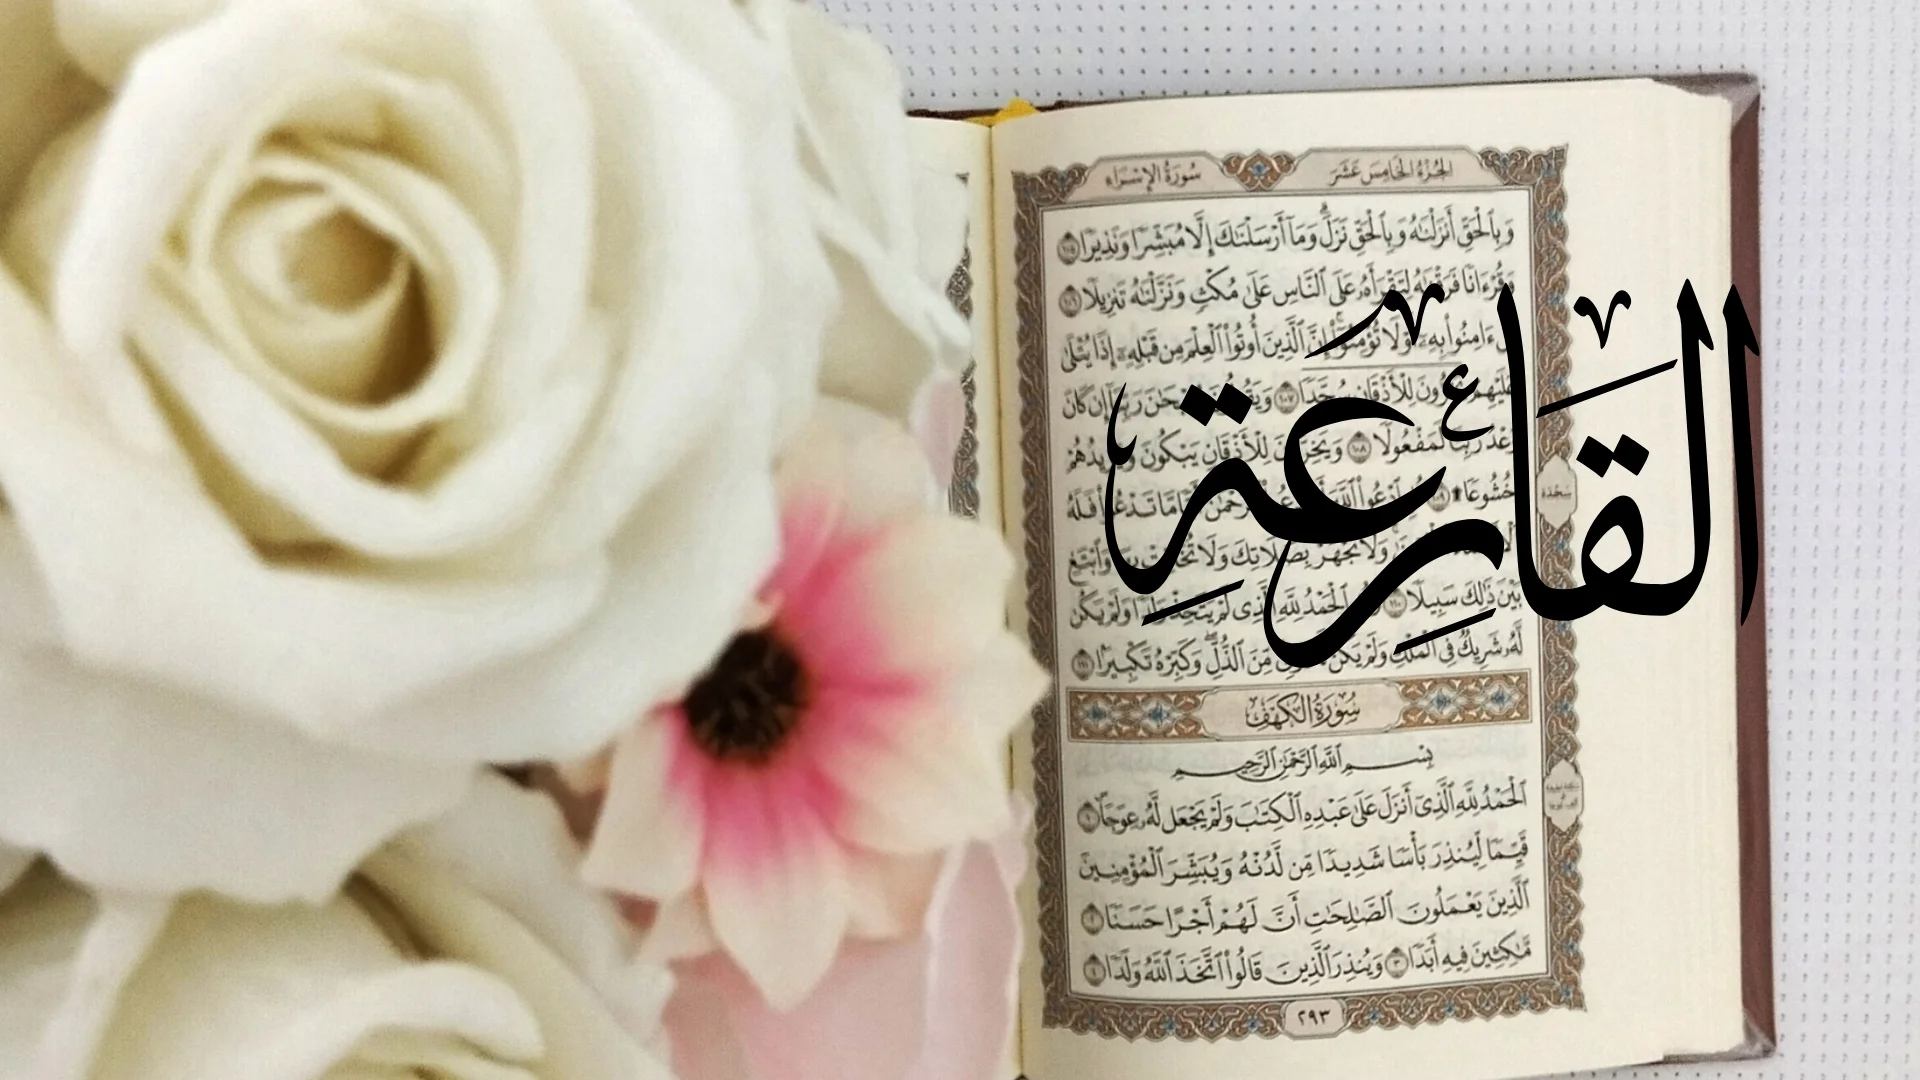 الجُزْءُ الخَامِسَ عَشَرَ
سُورَةُ الإِسْرَاءِ
وَبِٱلْحَقِّ أَنزَلْنَٰهُ وَبِٱلْحَقِّ نَزَلَ ۗ وَمَآ أَرْسَلْنَٰكَ إِلَّا مُبَشِّرًا وَنَذِيرًا ١٠٥
وَقُرْءَانًا فَرَقْنَٰهُ لِتَقْرَأَهُۥ عَلَى ٱلنَّاسِ عَلَىٰ مُكْثٍ وَنَزَّلْنَٰهُ تَنزِيلًا ١٠٦
ءَامِنُوا۟ بِهِۦٓ أَوْ لَا تُؤْمِنُوٓا۟ ۚ إِنَّ ٱلَّذِينَ أُوتُوا۟ ٱلْعِلْمَ مِن قَبْلِهِۦٓ إِذَا يُتْلَىٰ
عَلَيْهِمْ لِلْأَذْقَانِ سُجَّدًا ١٠٧ إِن كَانَ
وَعْدُ رَبِّنَا لَمَفْعُولًا ١٠٨ وَيَخِرُّونَ لِلْأَذْقَانِ يَبْكُونَ وَيَزِيدُهُمْ
خُشُوعًا ۩ ١٠٩ ٱدْعُوا۟ ٱللَّهَ أَيًّا مَّا تَدْعُوا۟ فَلَهُ
وَلَا تَجْهَرْ بِصَلَاتِكَ وَلَا تُخَافِتْ بِهَا وَٱبْتَغِ
بَيْنَ ذَٰلِكَ سَبِيلًا ١١٠ ٱلْحَمْدُ لِلَّهِ ٱلَّذِى لَمْ يَتَّخِذْ وَلَدًا وَلَمْ يَكُن
لَّهُۥ شَرِيكٌ فِى ٱلْمُلْكِ وَلَمْ يَكُن مِّنَ ٱلذُّلِّ ۖ وَكَبِّرْهُ تَكْبِيرًۢا ١١١
سُورَةُ الكَهْفِ
بِسْمِ ٱللَّهِ ٱلرَّحْمَٰنِ ٱلرَّحِيمِ
ٱلْحَمْدُ لِلَّهِ ٱلَّذِىٓ أَنزَلَ عَلَىٰ عَبْدِهِ ٱلْكِتَٰبَ وَلَمْ يَجْعَل لَّهُۥ عِوَجَا ۜ ١
قَيِّمًا لِّيُنذِرَ بَأْسًا شَدِيدًا مِّن لَّدُنْهُ وَيُبَشِّرَ ٱلْمُؤْمِنِينَ
ٱلَّذِينَ يَعْمَلُونَ ٱلصَّٰلِحَٰتِ أَنَّ لَهُمْ أَجْرًا حَسَنًا ٢
مَّٰكِثِينَ فِيهِ أَبَدًا ٣ وَيُنذِرَ ٱلَّذِينَ قَالُوا۟ ٱتَّخَذَ ٱللَّهُ وَلَدًا ٤
٢٩٣
سَجْدَة
القارعة